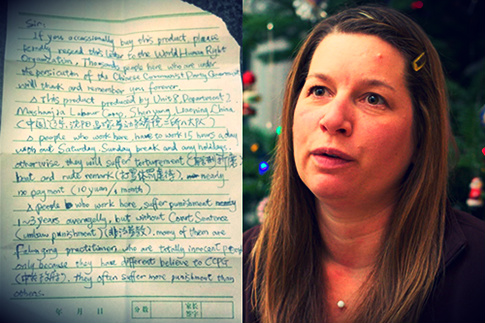 Sir:
If you occassionally buy this product, please
kindly resend this letter to the World Human Right
Organization. Thousands people here who are under
the persicution of the Chinese Communist Party Government
will thank and remember you forever.
This product produced by Unit 8, Department 2,
Masanjia Labour Camp, Shenyang, Liaoning, China
(中国, 辽宁, 沈阳, 马三家
people who work here have to work 15 hours a day
without Saturday, Sunday break and any holidays,
otherwise, they will suffer torturement
beat and rude remark nearly
no payment (10 yuan / 1 month)
people who work here, suffer punishment
1~3 years averagely, but without Court Sentence
(unlaw punishment) many of them are
Falun gong practitioner, who are totally innocent people
only because they have different believe to CCPG
they often suffer more punishment than
others.
年 月 日 分数 家长签字